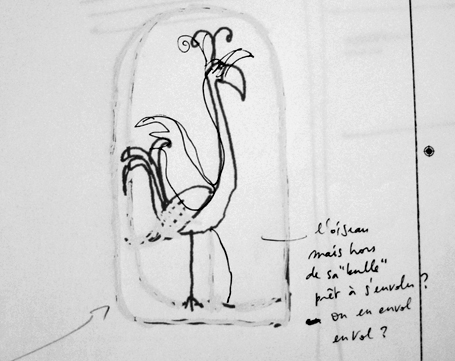 l'oiseau
mais hors
de sa "bulle"
prêt à s'envoler ?
ou en envol
envol ?